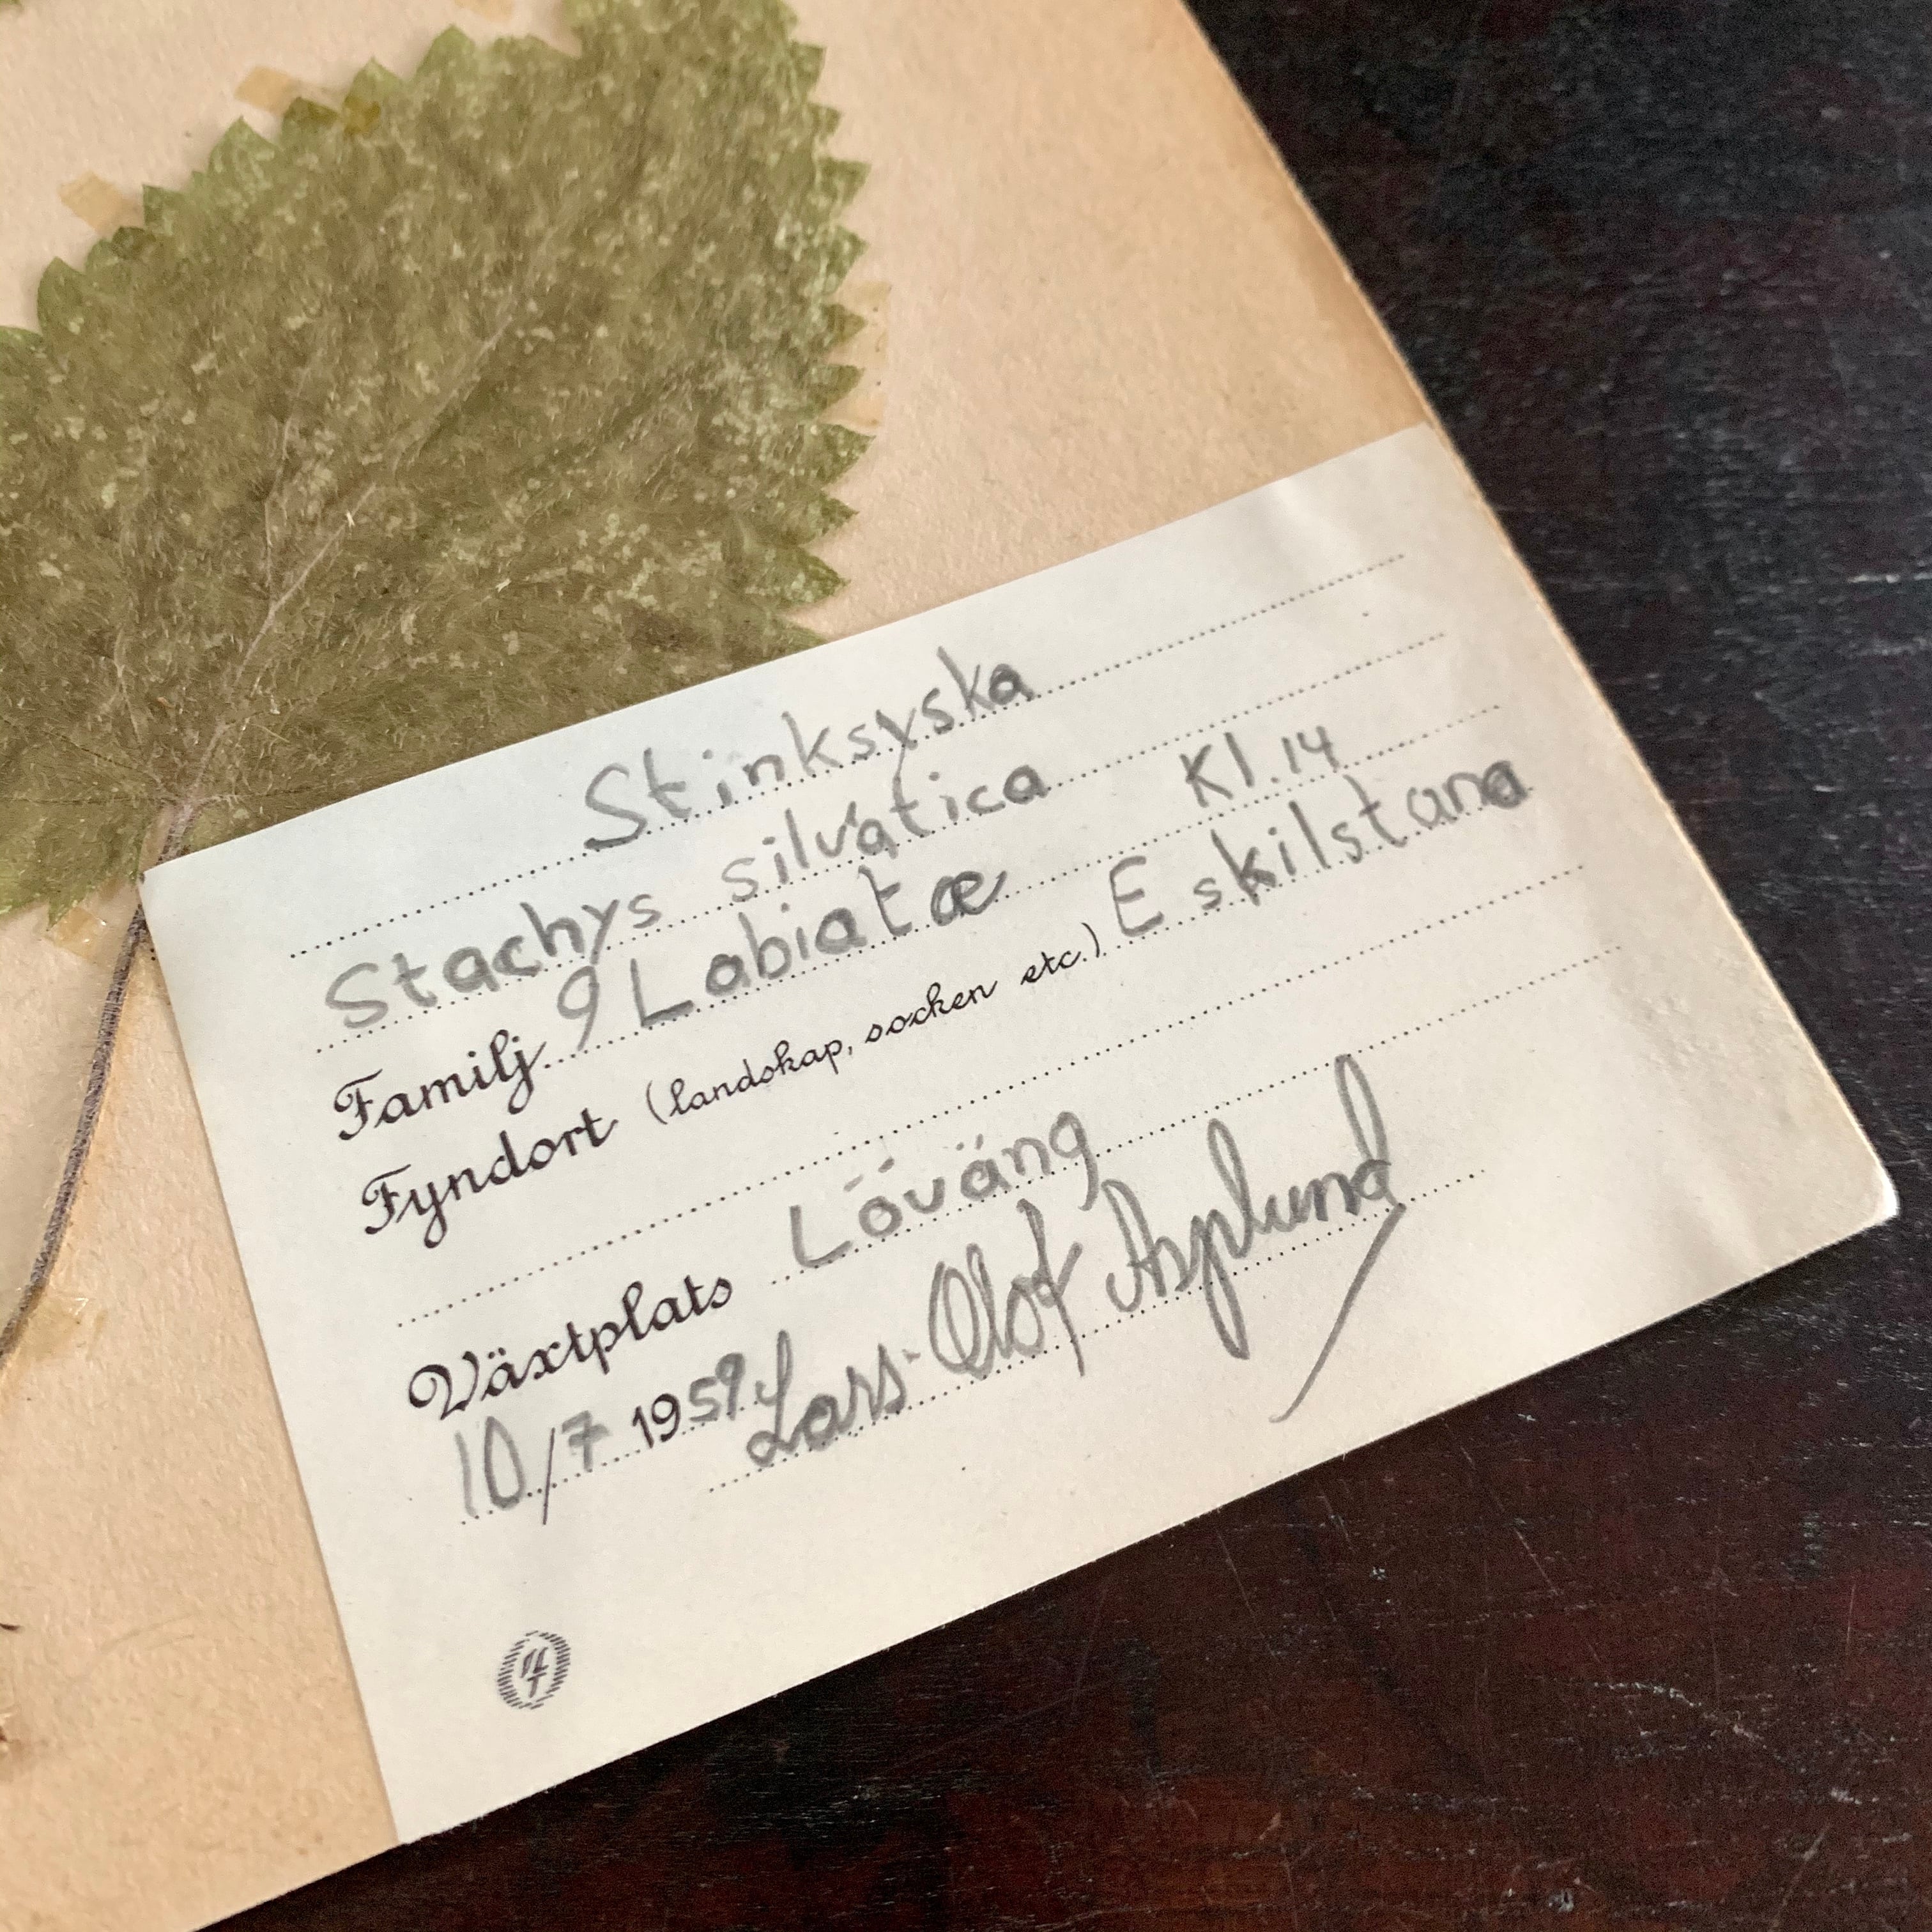 Stinksyska
Stachys silvatica Kl.14
Familj 9 Labiatæ
Fyndort (landskap, socken etc.) Eskilstuna
Växtplats Löväng
10/7 1959 Lars-Olof Asplund